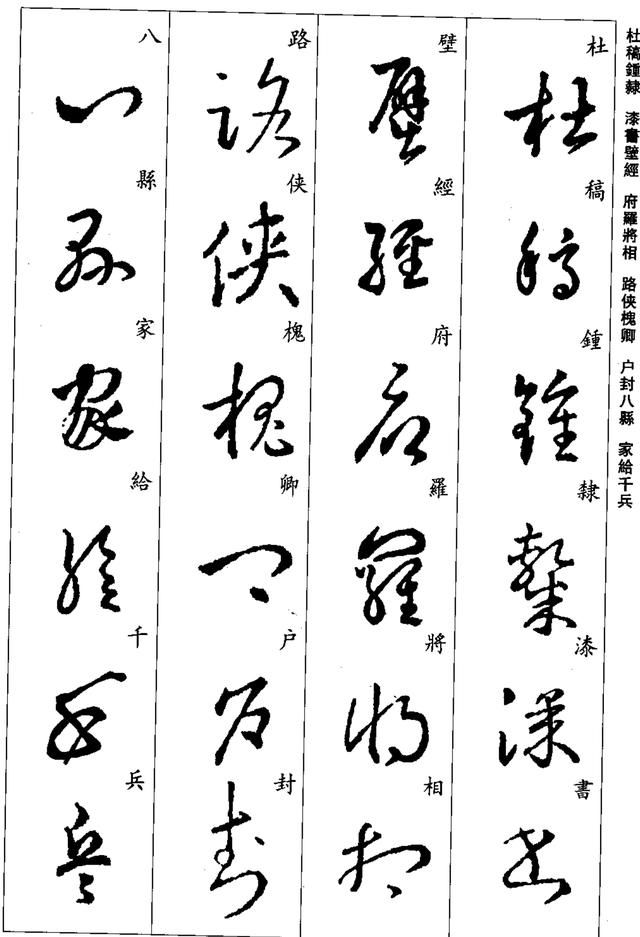 杜稿鍾隸　漆書壁經　府羅將相　路侠槐卿　户封八縣　家給千兵
杜稿鍾隸漆書
壁經府羅將相
路侠槐卿户封
八縣家給千兵